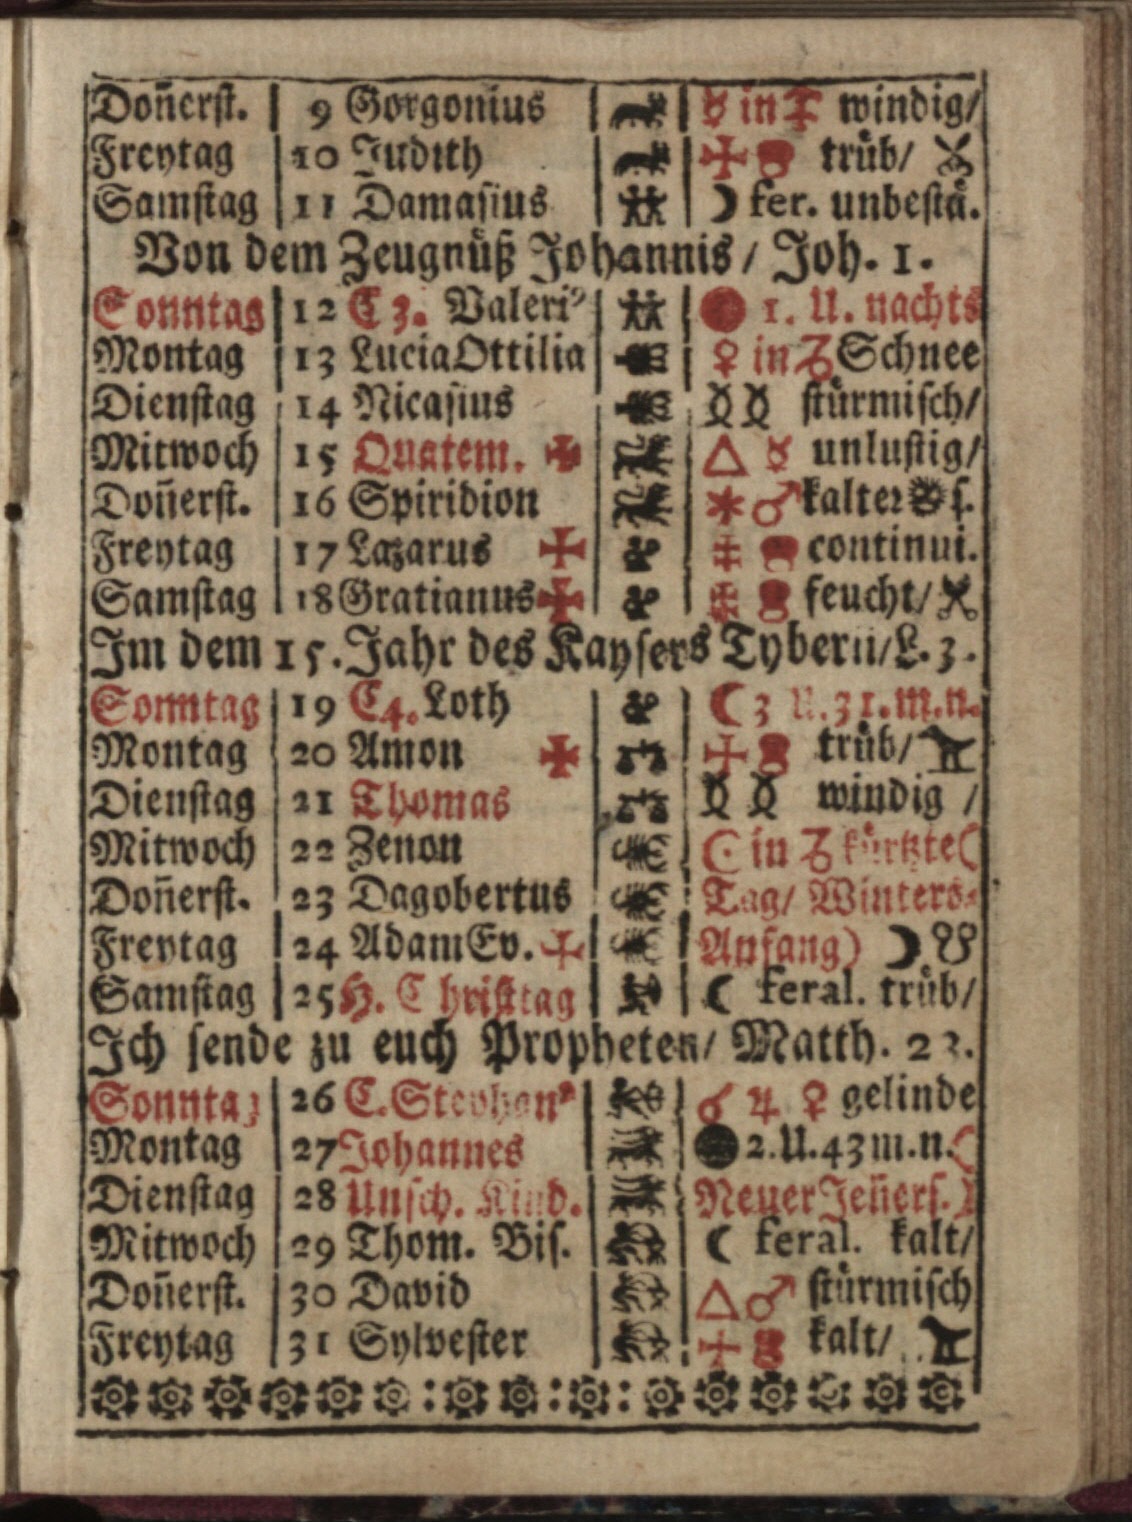 Doñerst. 9 Gorgonius ☿ in windig/
Freytag 10 Judith trüb/
Samstag 11 Damasius ☽ fer. unbestå.
Von dem Zeugnüß Johannis/ Joh. 1.
Sonntag 12 C 3. Valeri⁹ 1. U. nachts
Montag 13 Lucia Ottilia ♀ in ♑ Schnee
Dienstag 14 Nicasius stürmisch/
Mitwoch 15 Quatem. ✠ △ ☿ unlustig/
Doñerst. 16 Spiridion ⚹ ♂ kalter s.
Freytag 17 Lazarus ✠ continui.
Samstag 18 Gratianus ✠ feucht/
Im dem 15. Jahr des Kaysers Tyberii/ L. 3.
Sonntag 19 C4. Loth ☾ 3 U. 31. m. n.
Montag 20 Amon ✠ trüb/
Dienstag 21 Thomas windig /
Mitwoch 22 Zenon in ♑ kürtzte(
Doñerst. 23 Dagobertus Tag/ Winters-
Freytag 24 Adam Ev. Anfang)
Samstag 25 H. Christtag ☾ feral. trüb/
Ich sende zu euch Propheten/ Matth. 23.
Sonntag 26 C. Stephan⁹ ☌ ♃ ♀ gelinde
Montag 27 Johannes 2. U. 43 m. n. (
Dienstag 28 Unsch. Kind. Neuer Jeñers.)
Mitwoch 29 Thom. Bis. ☾ feral. kalt/
Doñerst. 30 David △ ♂ stürmisch
Freytag 31 Sylvester kalt/